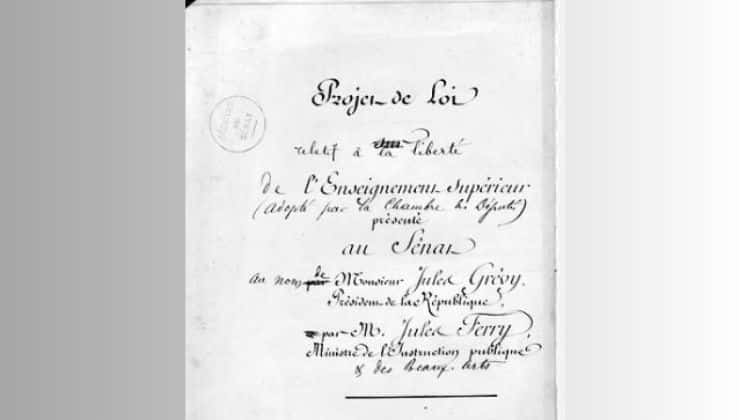 Projet de Loi
relatif à la liberté
de l'Enseignement Supérieur
(adopté par la Chambre des Députés)
présenté
au Sénat
au nom de Monsieur Jules Grévy,
Président de la République,
par M. Jules Ferry,
Ministre de l'Instruction publique
& des Beaux-Arts